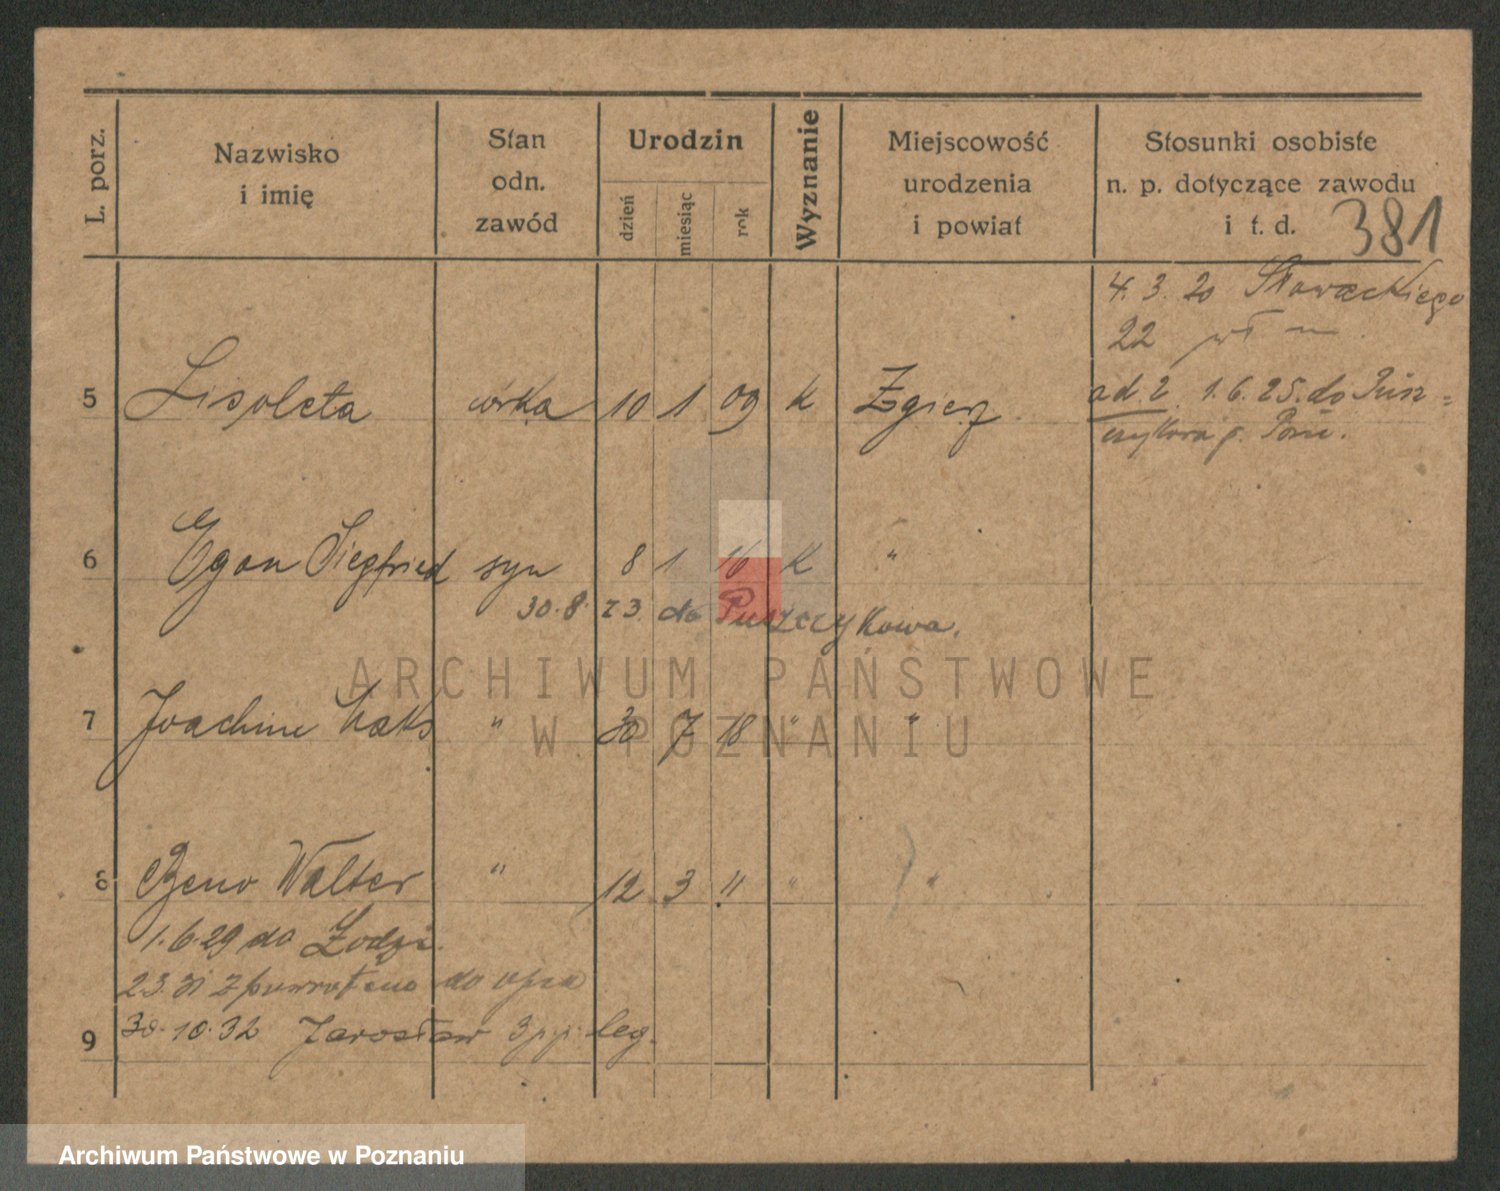 L. porz.
Nazwisko
i imię
Stan
odn.
zawód
Urodzin
dzień
miesiąc
rok
Wyznanie
Miejscowość
urodzenia
i powiat
Stosunki osobiste
n. p. dotyczące zawodu
i t. d.
381
4. 3. 20 Słowackiego
22
5 Lisoleta córka 10 1 09 k Zgierz
ad 2. 1.6.25. do Pusz=
czykowa p. Pozn.
6 Egon Siegfried syn 8 1 16 k "
30. 8. 23. do Puszczykowa.
7 Joachim Maks " 30 7 18 " "
8 Beno Walter " 12 3 " " "
1. 6. 29 do Łodzi.
31 z powrotem do ojca
9 30. 10. 32 Jarosław 3 p.p. leg.
ARCHIWUM PAŃSTWOWE
W POZNANIU
Archiwum Państwowe w Poznaniu